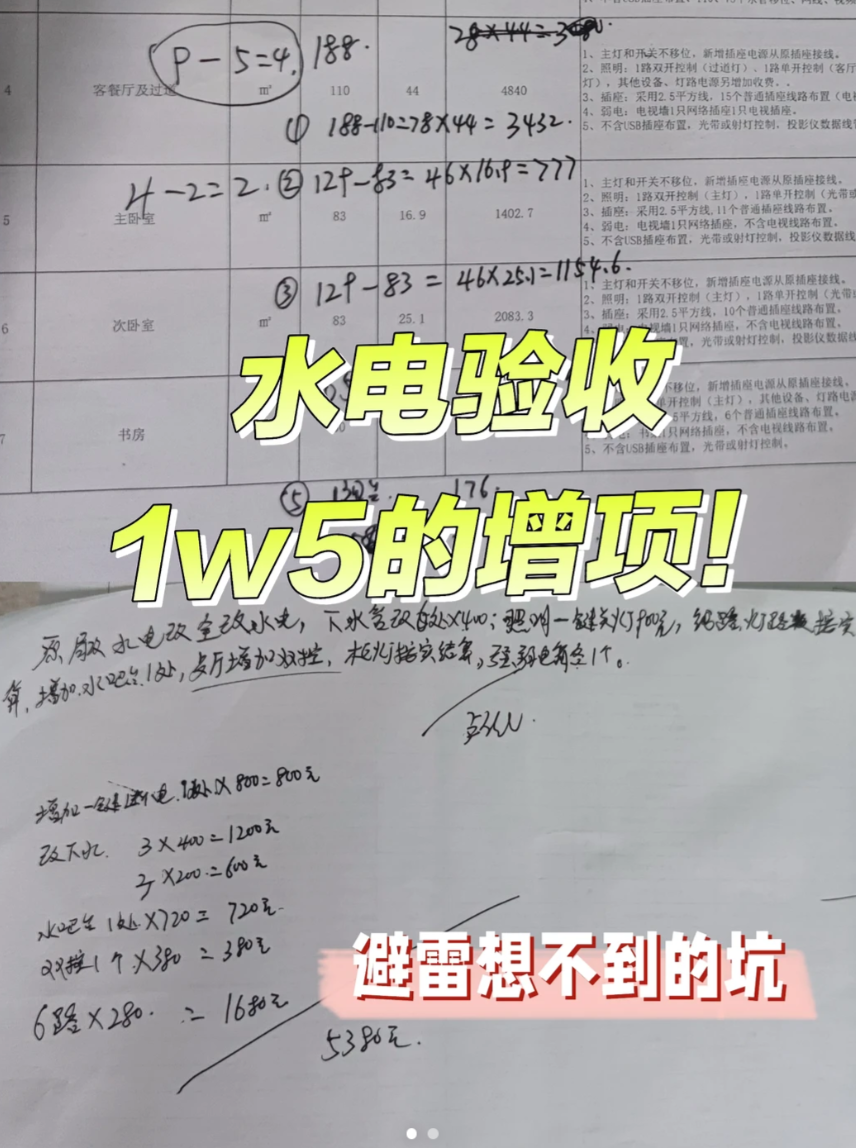 P-5=4. 188.
28×44=
4 客餐厅及过道 ㎡ 110 44 4840
1、主灯和开关不移位，新增插座电源从原插座接线。
2、照明：1路双开控制（过道灯）、1路单开控制（客厅
灯），其他设备、灯路电源另增加收费．．
3、插座：采用2.5平方线，15个普通插座线路布置（电
4、弱电：电视墙1只网络插座1只电视插座。
5、不含USB插座布置，光带或射灯控制，投影仪数据线
① 188-110=78×44=3432.
4-2=2. ② 129-83=46×16.9=777
5 主卧室 ㎡ 83 16.9 1402.7
1、主灯和开关不移位，新增插座电源从原插座接线。
2、照明：1路双开控制（主灯），1路单开控制（光带或
3、插座：采用2.5平方线,11个普通插座线路布置。
4、弱电：电视墙1只网络插座，不含电视线路布置。
5、不含USB插座布置，光带或射灯控制，投影仪数据线
③ 129-83=46×25.1=1154.6.
6 次卧室 ㎡ 83 25.1 2083.3
1、主灯和开关不移位，新增插座电源从原插座接线。
2、照明：1路双开控制（主灯），1路单开控制（光带
3、插座：采用2.5平方线，10个普通插座线路布置。
视墙1只网络插座，不含电视线路布置。
置，光带或射灯控制，投影仪数据线
水电验收
7 书房
移位，新增插座电源从原插座接线。
开控制（主灯），其他设备、灯路电源
5平方线，6个普通插座线路布置。
1只网络插座，不含电视线路布置。
5、不含USB插座布置，光带或射灯控制。
⑤ 176.
1w5的增项!
水电改全改水电，下水管改 ×400；照明一键关灯900元，
算，增加水吧台1处，客厅增加双控，
增加一键 电.1处×800=800元
改下水. 3×400=1200元
3×200=600元
水吧台 1处×720=720元
双控1个×380=380元
6路×280.=1680元
5380元.
避雷想不到的坑